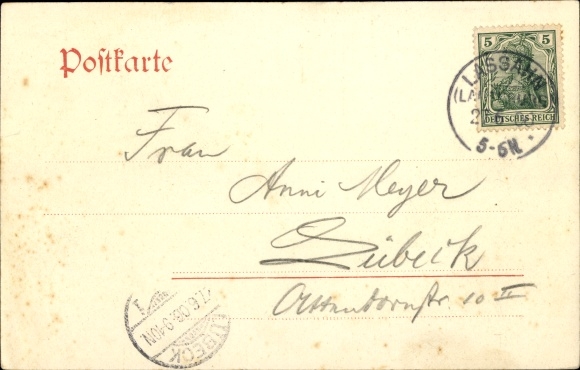 Postkarte
5 5
DEUTSCHES REICH
LASSAHN
5-6N.
Frau
Anni Meyer
Lübeck
Attendornstr. 10 II
LÜBECK